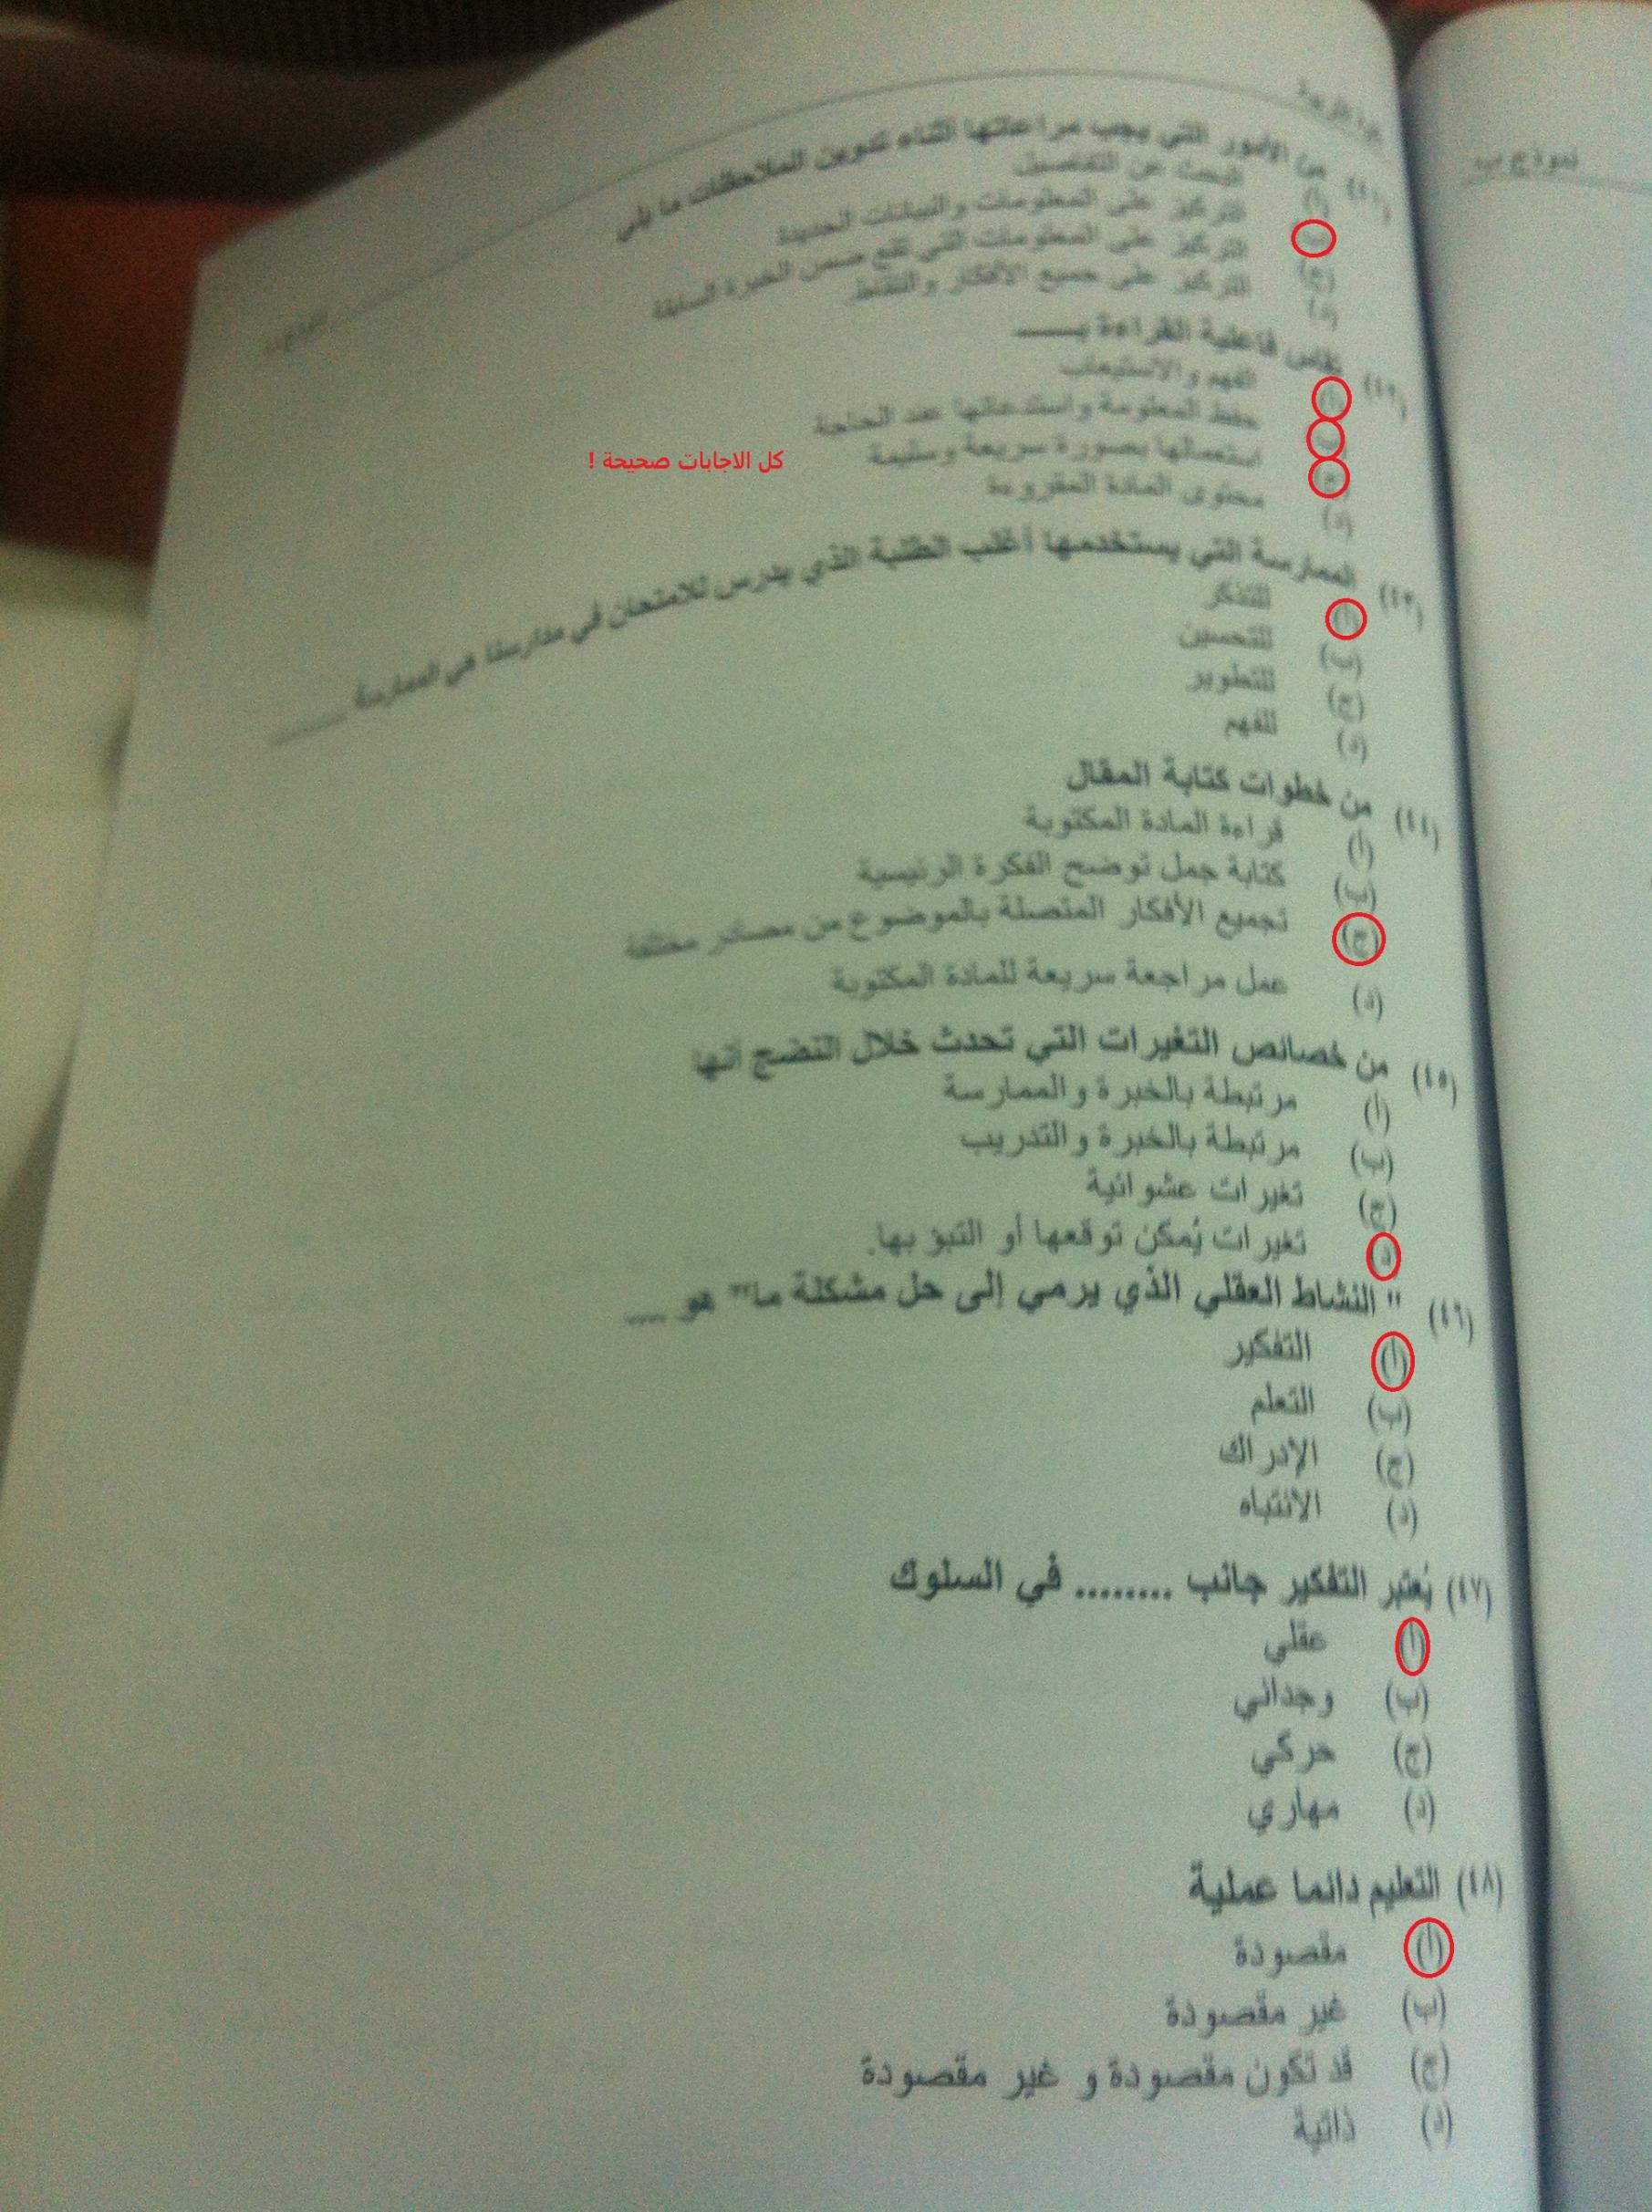 نموذج ب
(٤١) من الأمور التي يجب مراعاتها أثناء تدوين الملاحظات ما يلي
(أ) البحث عن التفاصيل
(ب) التركيز على المعلومات والبيانات الجديدة
(ج) التركيز على المعلومات التي تقع ضمن الخبرة السابقة
(د) التركيز على جميع الأفكار والنقاط
(٤٢) تقاس فاعلية القراءة بـ____
(أ) الفهم والاستيعاب
(ب) حفظ المعلومة واستدعائها عند الحاجة
(ج) استعمالها بصورة سريعة وسليمة
كل الاجابات صحيحة !
(د) محتوى المادة المقروءة
(٤٣) الممارسة التي يستخدمها أغلب الطلبة الذي يدرس للامتحان في مدارسنا هي الممارسة ______
(أ) للتذكر
(ب) للتحسين
(ج) للتطوير
(د) للفهم
(٤٤) من خطوات كتابة المقال
(أ) قراءة المادة المكتوبة
(ب) كتابة جمل توضح الفكرة الرئيسية
(ج) تجميع الأفكار المتصلة بالموضوع من مصادر مختلفة
(د) عمل مراجعة سريعة للمادة المكتوبة
(٤٥) من خصائص التغيرات التي تحدث خلال النضج أنها
(أ) مرتبطة بالخبرة والممارسة
(ب) مرتبطة بالخبرة والتدريب
(ج) تغيرات عشوائية
(د) تغيرات يُمكن توقعها أو التبؤ بها.
(٤٦) " النشاط العقلي الذي يرمي إلى حل مشكلة ما" هو ....
(أ) التفكير
(ب) التعلم
(ج) الإدراك
(د) الانتباه
(٤٧) يُعتبر التفكير جانب ........ في السلوك
(أ) عقلي
(ب) وجداني
(ج) حركي
(د) مهاري
(٤٨) التعليم دائما عملية
(أ) مقصودة
(ب) غير مقصودة
(ج) قد تكون مقصودة و غير مقصودة
(د) ذاتية